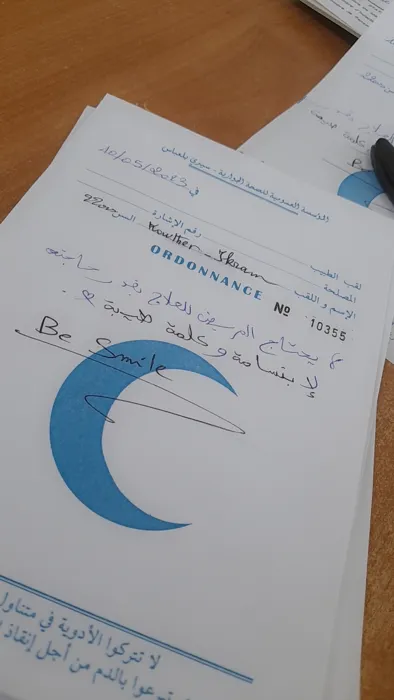 المؤسسة العمومية للصحة الجوارية - سيدي بلعباس
في 10/05/2023
لقب الطبيب
المصلحة رقم الإشارة
الإسم و اللقب Kouther_Ikram السن 22ans
ORDONNANCE Nº 10355
لا يحتاج المريض للعلاج بقدر حاجته
لإبتسامة وكلمة طيبة
Be Smile
لا تتركوا الأدوية في متناول
تبرعوا بالدم من أجل إنقاذ